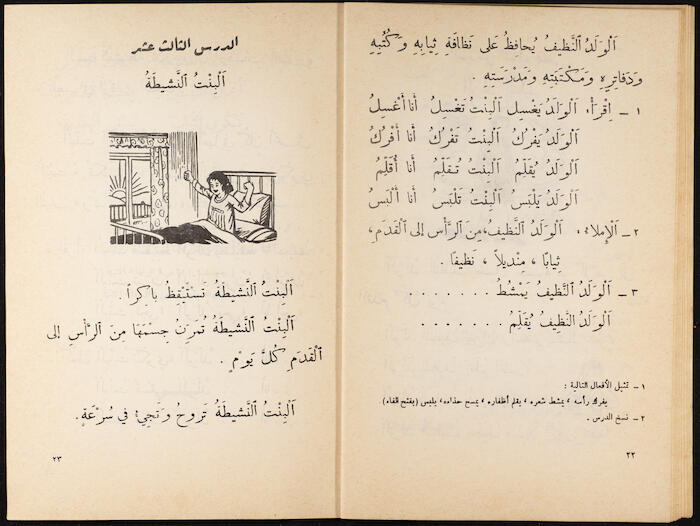 اَلْوَلَدُ النَّظيفُ يُحافِظُ عَلى نَظافَةِ ثِيابِهِ وَكُتُبِهِ
وَدَفاتِرِهِ وَمَكْتَبَتِهِ وَمَدْرَسَتِهِ .
١ – اِقْرَأْ: اَلْوَلَدُ يَغْسِلُ اَلْبِنْتُ تَغْسِلُ أَنا أَغْسِلُ
اَلْوَلَدُ يَفْرُكُ اَلْبِنْتُ تَفْرُكُ أَنا أَفْرُكُ
اَلْوَلَدُ يُقَلِّمُ اَلْبِنْتُ تُقَلِّمُ أَنا أُقَلِّمُ
اَلْوَلَدُ يَلْبَسُ اَلْبِنْتُ تَلْبَسُ أَنا أَلْبَسُ
٢ – اَلْإِملاءُ: اَلْوَلَدُ النَّظيفُ، مِنَ الرَّأْسِ إِلى الْقَدَمِ،
ثِيابًا ، مِنْديلاً ، نَظيفًا .
٣ – اَلْوَلَدُ النَّظيفُ يَمْشُطُ . . . . . . .
اَلْوَلَدُ النَّظيفُ يُقَلِّمُ . . . . . . .
١ – تمثيل الأفعال التالية :
يفرك رأسه ، يمشط شعره ، يقلم أظفاره ، يمسح حذاءه، يلبس (بفتح الباء)
٢ – نسخ الدرس .
٢٢
الدرس الثالث عشر
اَلْبِنْتُ النَّشيطَةُ
اَلْبِنْتُ النَّشيطَةُ تَسْتَيْقِظُ باكِراً .
اَلْبِنْتُ النَّشيطَةُ تُمَرِّنُ جِسْمَهَا مِنَ الرَّأْسِ إِلى
الْقَدَمِ كُلَّ يَوْمٍ .
اَلْبِنْتُ النَّشيطَةُ تَروحُ وَتَجيءُ في سُرْعَةٍ .
٢٣